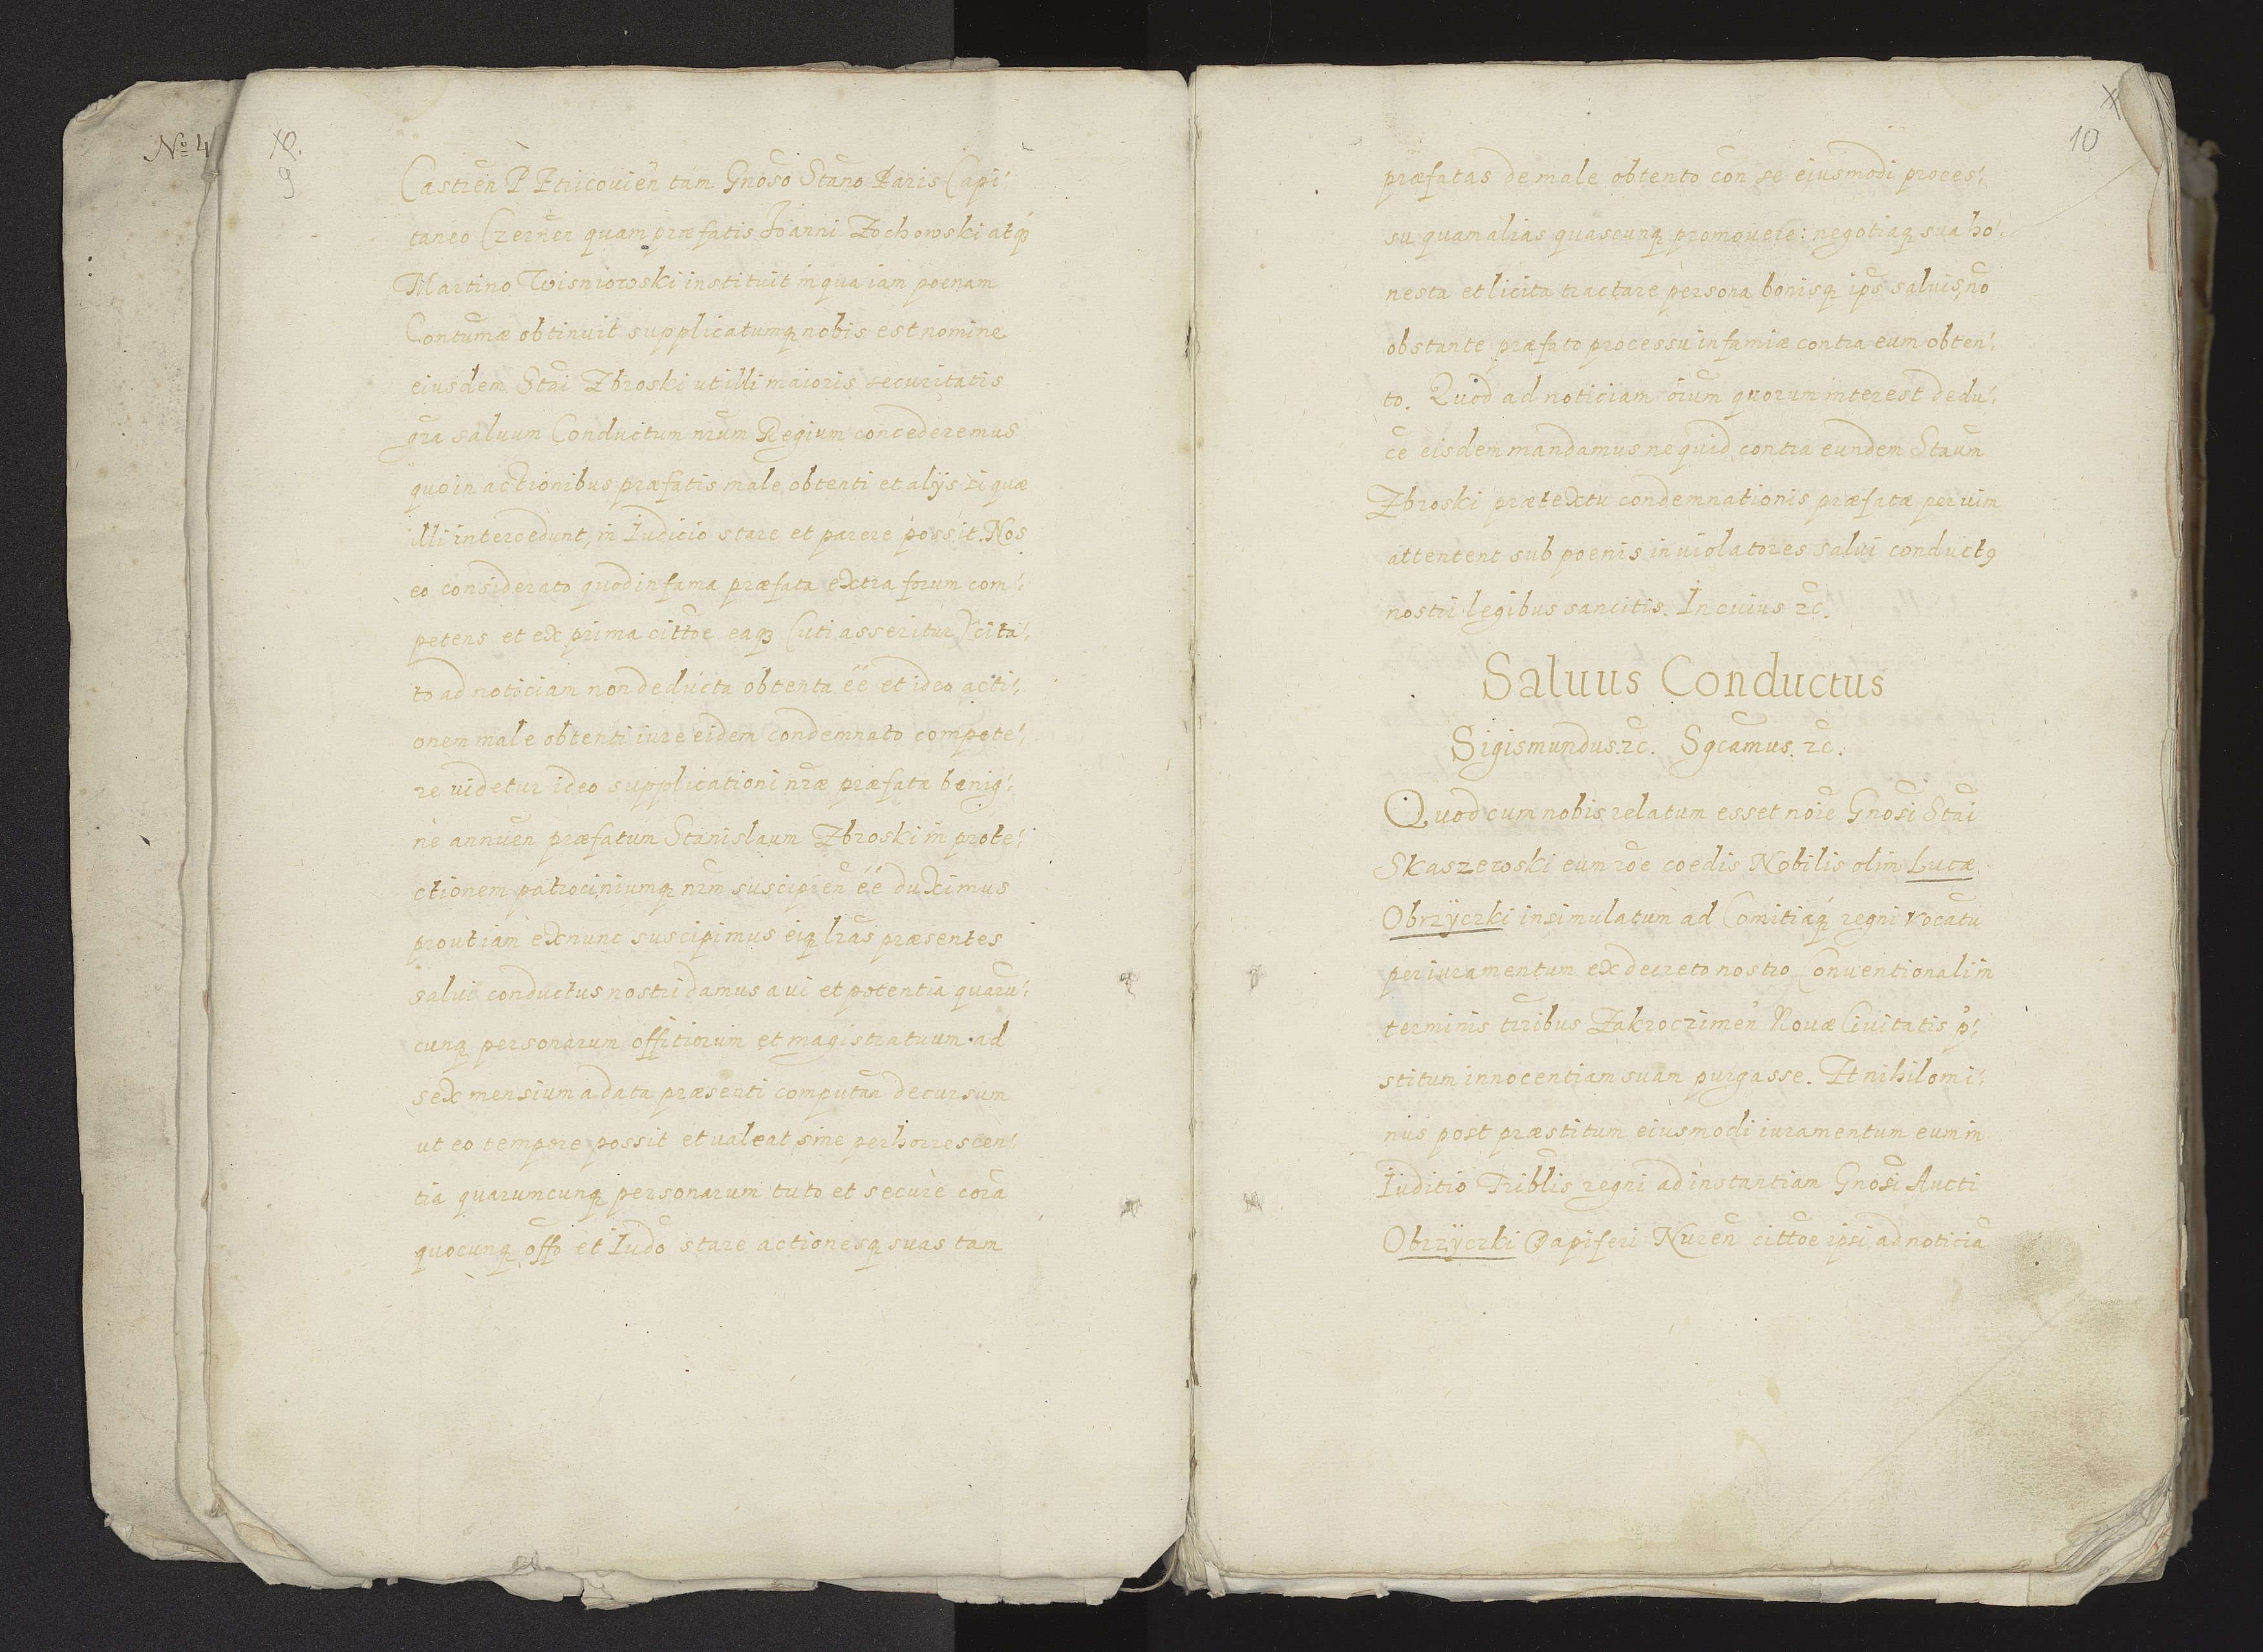 No 4
10.
9
Castren̄ Petricouien̄ tam Gnōso Stano Paris Capi
taneo Czerner quam præfatis Joanni Zochowski atq3
Martino Wisniowski instituit in qua iam poenam
Contumæ obtinuit supplicatumq nobis est nomine
eiusdem Stāi Zbroski ut illi maioris securitatis
gr̄a saluum Conductum nr̄um Regium concederemus
quo in actionibus præfatis male obtenti et alÿs si quæ
illi intercedunt, in Iudicio stare et parere possit. Nos
eo considerato quod infama præfata extra forum com
petens et ex prima citt̄oe eaq3 (uti asseritur) cita
to ad noticiam non deducta obtenta éé et ideo acti
onem male obtenti iure eidem condemnato compete
re videtur ideo supplicationi nr̄æ præfatæ benig
ne annuen̄ præfatum Stanislaum Zbroski in prote
ctionem patrociniumq nr̄m suscipien̄ éé duximus
prout iam exnunc suscipimus eiq lr̄as præsentes
salui conductus nostri damus a ui et potentia quarū
cunq personarum offitiorum et magistratuum ad
sex mensium a data præsenti computan̄ decursum
ut eo tempore possit et ualeat sine perhorrescen
tia quarumcunq personarum tuto et secure corā
quocunq off̄o et Iud̄o stare actionesq suas tam
10
præfatas de male obtento con̄ se eiusmodi proces
su quam alias quascunq promouere: negotiaq sua ho
nesta et licita tractare persona bonisq ips̄ saluis, nō
obstante præfato processu infamiæ contra eum obten
to. Quod ad noticiam oīum quorum interest dedu
cē eisdem mandamus ne quid contra eundem Staūm
Zbroski prætextu condemnationis præfatæ per uim
attentent sub poenis in uiolatores salui conduct9
nostri legibus sancitis. In cuius 2c.
Saluus Conductus
Sigismundus. 2c. Sgcamus. 2c.
Quod cum nobis relatum esset noīe Gnōsi Stāi
Skaszewski eum rōe coedis Nobilis olim Lucæ
Obrzÿczki insimulatum ad Comitiaq regni vocatū
per iuramentum ex decreto nostro Conuentionali in
terminis tr̄ribus Zakroczimen̄ Nouæ Ciuitatis p̄
stitum innocentiam suam purgasse. Et nihilomi
nus post præstitum eiusmodi iuramentum eum in
Iuditio Tribl̄is regni ad instantiam Gnōsi Aucti
Obrzÿczki Dapiferi Nuren̄ citt̄oe ipsi ad noticiā